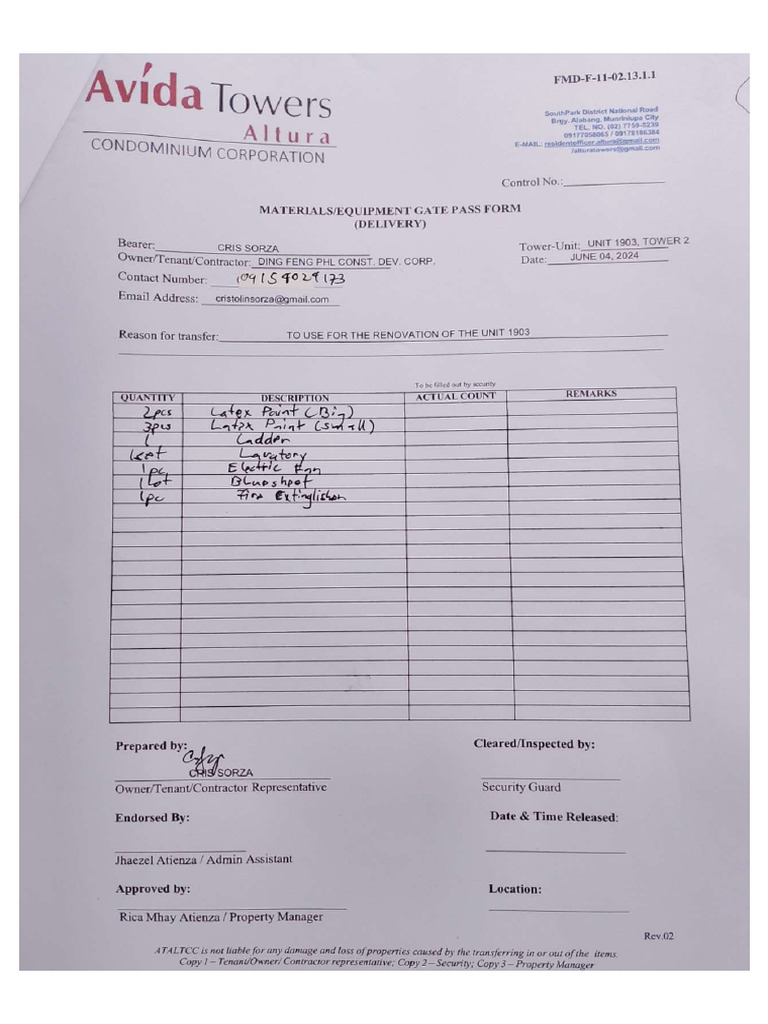 Avída Towers
Altura
CONDOMINIUM CORPORATION
FMD-F-11-02.13.1.1
SouthPark District National Road
Brgy. Alabang, Muntinlupa City
TEL. NO. (02) 7759-5239
09177058065 / 09178186384
E-MAIL: residentofficer.altura@gmail.com
/alturatowers@gmail.com
Control No.:
MATERIALS/EQUIPMENT GATE PASS FORM
(DELIVERY)
Bearer: CRIS SORZA
Tower-Unit: UNIT 1903, TOWER 2
Owner/Tenant/Contractor: DING FENG PHL CONST. DEV. CORP.
Date: JUNE 04, 2024
Contact Number: 09154029173
Email Address: cristolinsorza@gmail.com
Reason for transfer: TO USE FOR THE RENOVATION OF THE UNIT 1903
To be filled out by security
QUANTITY DESCRIPTION ACTUAL COUNT REMARKS
2pcs Latex Paint (Big)
3pcs Latex Paint (small)
1 Ladder
1set Lavatory
1pc Electric Fan
1lot
1pc Fire
Prepared by:
Cleared/Inspected by:
CRIS SORZA
Owner/Tenant/Contractor Representative
Security Guard
Endorsed By:
Date & Time Released:
Jhaezel Atienza / Admin Assistant
Approved by:
Location:
Rica Mhay Atienza / Property Manager
Rev.02
ATALTCC is not liable for any damage and loss of properties caused by the transferring in or out of the items.
Copy 1 – Tenant/Owner/ Contractor representative; Copy 2 – Security; Copy 3 – Property Manager